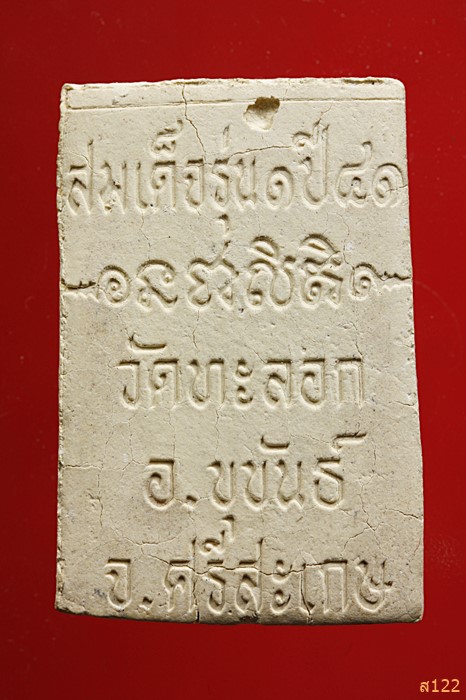 สมเด็จรุ่น๑ปี๔๑
วัดทะลอก
อ.ขุขันธ์
จ.ศรีสะเกษ
ส122